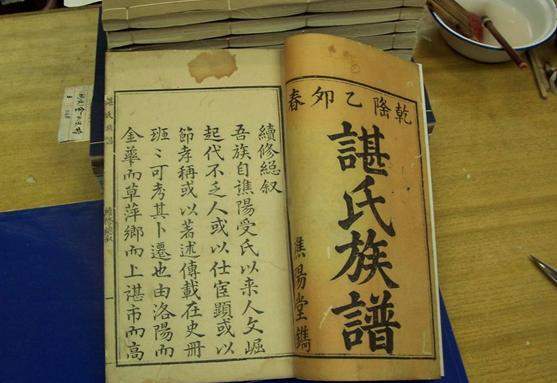 乾隆乙卯春
諶氏族譜
譙陽堂鐫
續修緫叙
吾族自譙陽受氏以来人文崛
起代不乏人或以仕宦顯或以
節孝稱或以著述傳載在史册
班〻可考其卜遷也由洛陽而
金華而草萍鄉而上諶市而高